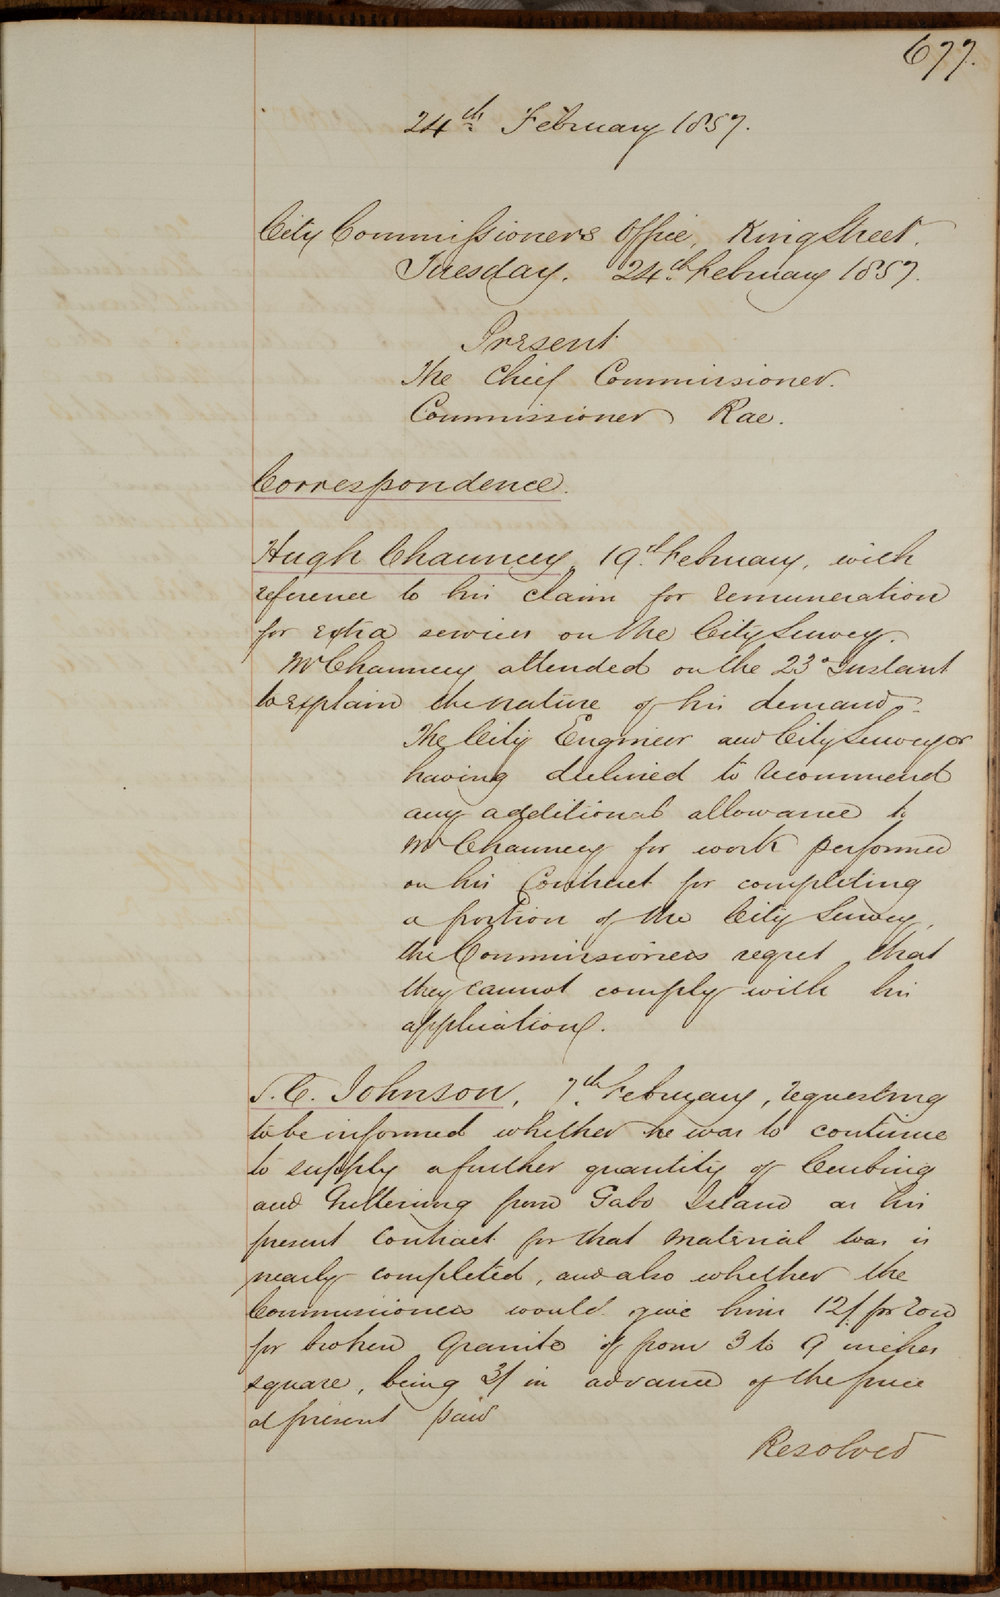 677.
24th February 1857.
City Commissioners Office, King Street.
Tuesday. 24th February 1857.
Present
The Chief Commissioner.
Commissioner Rae.
Correspondence.
Hugh Chauncey, 19th February, with
reference to his claim for remuneration
for extra services on the City Survey.
Mr Chauncey attended on the 23d Instant
to explain the nature of his demand.
The City Engineer and City Surveyor
having declined to recommend
any additional allowance to
Mr Chauncey for work performed
on his Contract for completing
a portion of the City Survey,
the Commissioners regret that
they cannot comply with his
application.
S. C. Johnson, 7th February, requesting
to be informed whether he was to continue
to supply a further quantity of Curbing
and Guttering from Gabo Island as his
present Contract for that material was is
nearly completed, and also whether the
Commissioners would give him 12/. pr Yard
for broken Granite if from 3 to 9 inches
square, being 3/ in advance of the price
at present paid
Resolved